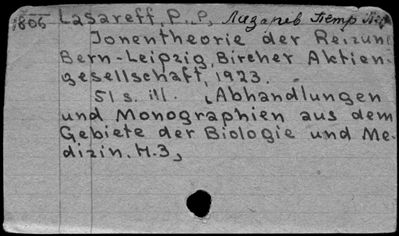 1806 Lasareff, P., P., Лазарев Петр
Jonentheorie der Reizun
Bern-Leipzig, Bircher Aktien-
gesellschaft, 1923.
51 s. ill. (Abhandlungen
und Monographien aus dem
Gebiete der Biologie und Me-
dizin. H.3)